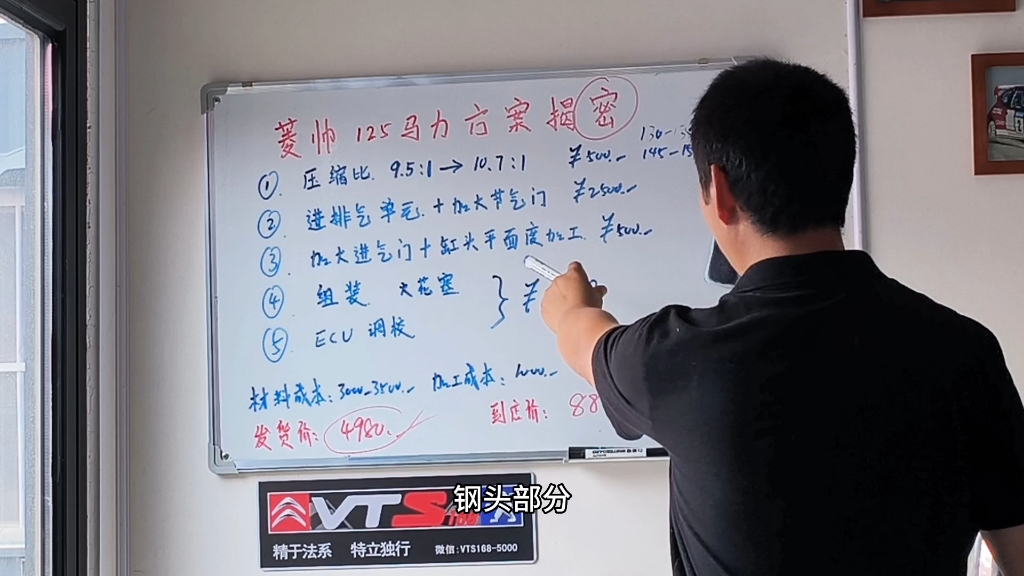 菱帅 125马力方案揭密
130-
145-15
①. 压缩比. 9.5:1→10.7:1 ¥500.-
②. 进排气单元.+加大节气门 ¥2500.-
③. 加大进气门+缸头平面度加工. ¥500.-
④ 组装. 火花塞 } ¥
⑤. ECU 调校
材料成本: 3000-3500.- 加工成本: 1000.-
发货价: 4980.- 到店价: 88
钢头部分
VTS168
精于法系 特立独行 微信:VTS168-5000